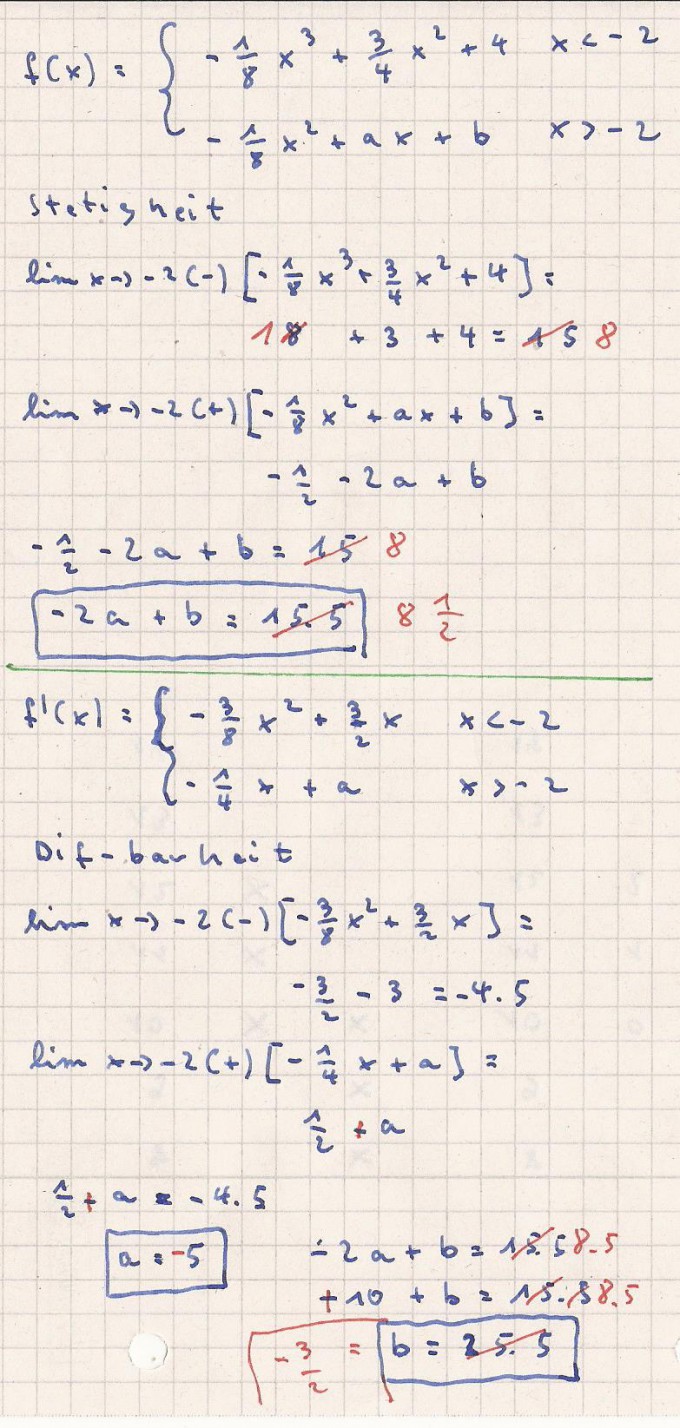 f(x) = { - 1/8 x³ + 3/4 x² + 4   x < -2
- 1/8 x² + a x + b   x > -2
Stetigkeit
lim x -> -2(-) [- 1/8 x³ + 3/4 x² + 4] =
1 8 + 3 + 4 = 15 8
lim x -> -2(+) [- 1/8 x² + ax + b] =
- 1/2 - 2a + b
- 1/2 - 2a + b = 15 8
-2a + b = 15.5   8 1/2
f'(x) = { - 3/8 x² + 3/2 x   x < -2
- 1/4 x + a   x > -2
Dif-barkeit
lim x -> -2(-) [- 3/8 x² + 3/2 x] =
- 3/2 - 3 = -4.5
lim x -> -2(+) [- 1/4 x + a] =
1/2 + a
1/2 + a = -4.5
a = -5   -2a + b = 15.5 8.5
+10 + b = 15.5 8.5
- 3/2 = b = 25.5